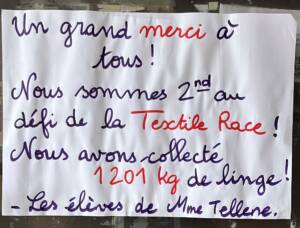 Un grand merci à
tous !
Nous sommes 2nd au
défi de la Textile Race !
Nous avons collecté
1201 kg de linge !
- Les élèves de Mme Tellene.